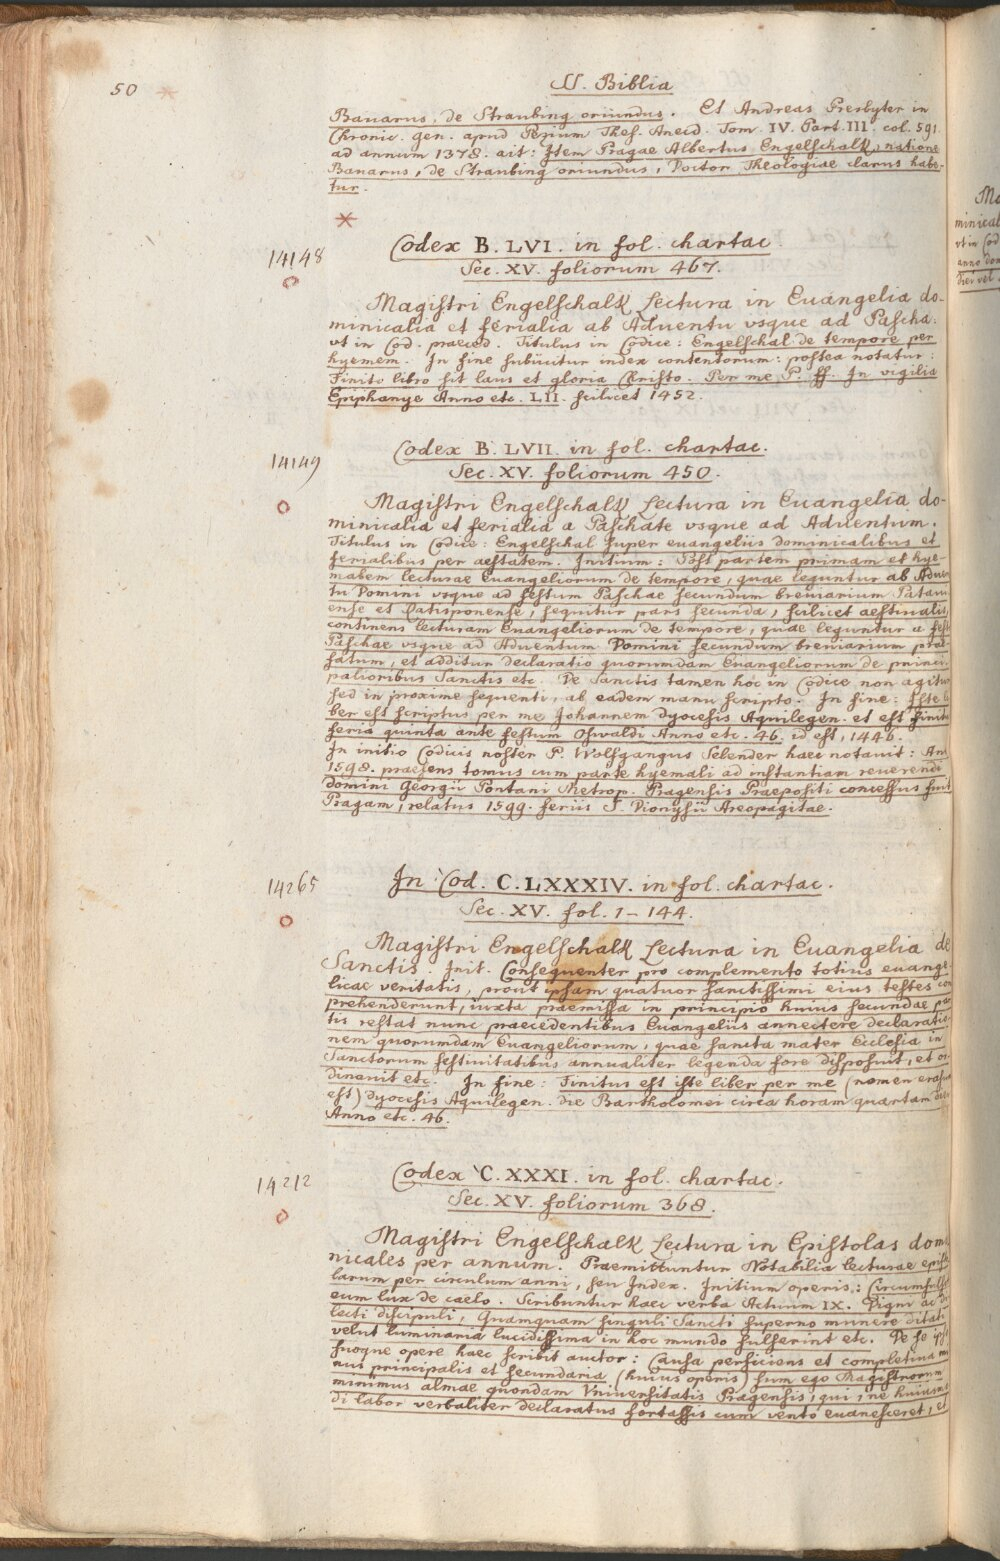 50
SS. Biblia
Bauarus, de Straubing oriundus. Et Andreas Presbyter in
Chronic. gen. apud Pezium Thes. Anecd. Tom. IV. Part. III. col. 591.
ad annum 1378. ait: Item Pragae Albertus Engelschalk, natione
Bauarus, de Straubing oriundus, Doctor Theologiae clarus habe-
tur.
14148
Codex B. LVI. in fol. chartac.
Sec. XV. foliorum 467.
Magistri Engelschalk Lectura in Euangelia do-
minicalia et ferialia ab Aduentu vsque ad Pascha.
vt in Cod. praeced. Titulus in Codice: Engelschal de tempore per
hyemem. In fine subiicitur index contentorum: postea notatur:
Finito libro sit laus et gloria Christo. Per me P. ff. In vigilia
Epiphanye Anno etc. LII. scilicet 1452.
14149
Codex B. LVII. in fol. chartac.
Sec. XV. foliorum 450.
Magistri Engelschalk Lectura in Euangelia do-
minicalia et ferialia a Paschate vsque ad Aduentum.
Titulus in Codice: Engelschal super euangeliis dominicalibus et
ferialibus per aestatem. Initium: Post partem primam et hye-
malem lecturae Euangeliorum de tempore, quae leguntur ab Aduen
tu Domini vsque ad festum Paschae secundum breuiarium Pataui
ense et Ratisponense, sequitur pars secunda, scilicet aestiualis,
continens lecturam Euangeliorum de tempore, quae leguntur a festo
Paschae vsque ad Aduentum Domini secundum breuiarium prae
fatum, et additur declaratio quorumdam Euangeliorum de princi-
palioribus Sanctis etc. De Sanctis tamen hoc in Codice non agitur
sed in proxime sequenti, ab eadem manu scripto. In fine: Iste li
ber est scriptus per me Johannem dyocesis Aquilegen. et est finitus
feria quinta ante festum Oswaldi Anno etc. 46. id est, 1446.
In initio Codicis noster P. Wolfgangus Selender haec notauit: An
1598. praesens tomus cum parte hyemali ad instantiam reuerendi
domini Georgii Pontani Metrop. Pragensis Praepositi concessus fuit
Pragam, relatus 1599. feriis S. Dionysii Areopagitae.
14265
In Cod. C. LXXXIV. in fol. chartac.
Sec. XV. fol. 1-144.
Magistri Engelschalk Lectura in Euangelia de
Sanctis. Init. Consequenter pro complemento totius euange-
licae veritatis, prout ipsam quatuor sanctissimi eius testes con
prehenderunt, iuxta praemissa in principio huius secundae par
tis restat nunc praecedentibus Euangeliis annectere declaratio-
nem quorumdam Euangeliorum, quae sancta mater Ecclesia in
Sanctorum festiuitatibus annualiter legenda fore disposuit, et or
dinauit etc. In fine: Finitus est iste liber per me (nomen erasum
est) dyocesis Aquilegen. die Bartholomei circa horam quartam
Anno etc. 46.
14212
Codex C. XXXI. in fol. chartac.
Sec. XV. foliorum 368.
Magistri Engelschalk Lectura in Epistolas domi
nicales per annum. Praemittuntur Notabilia lecturae episto
larum per circulum anni, seu Index. Initium operis: Circumfulsit
eum lux de caelo. Scribuntur haec verba Actuum IX. Digni ac di
lecti discipuli, Quamquam singuli Sancti superno munere ditati
velut luminaria lucidissima in hoc mundo fulserint etc. De se ipso
suoque opere haec scribit auctor: Causa perficiens et completiua mi
nus principalis et secundaria (huius operis) sum ego Magistrorum
minimus almae quondam Vniuersitatis Pragensis, qui, ne huiusmo
di labor verbaliter declaratus fortassis cum vento euanesceret, et